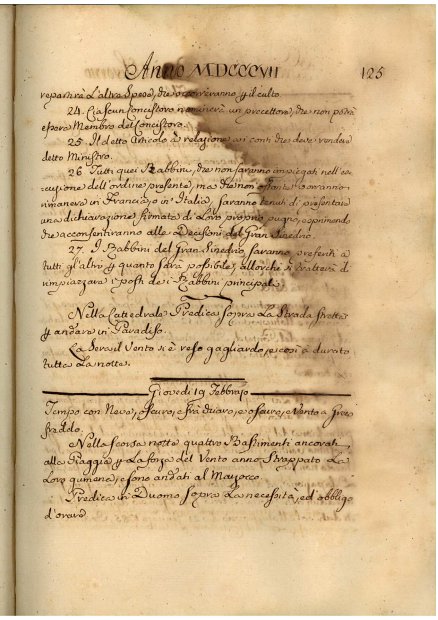 Anno MDCCCVII 125
repartirà l'altre Spese, che occorreranno, p il culto.
24. Ciascun Concistoro nominerà un precettore, che non potrà
essere Membro del Concistoro.
25. Il detto Articolo à relazione ai conti che deve rendere
detto Ministro.
26. Tutti quei Rabbini, che non saranno impiegati nell'ese-
cuzione dell'ordine presente, ma che non ostante
rimanere in Francia, o in Italia, saranno tenuti di presentare
una dichiarazione firmata di Loro proprio pugno, esprimendo
che acconsentiranno alle Decisioni del Gran Sinedrio.
27. I Rabbini del Gran Sinedrio, saranno preferiti a
tutti gl'altri p quanto sarà possibile, allorchè si tratterà d'
rimpiazzare i posti de i Rabbini principali.
Nella Cattedrale Predica sopra La Strada stretta
p andare in Paradiso.
La Sera il Vento si è reso gagliardo, e così à durato
tutta La notte.
Giovedì 19 Febbrajo
Tempo con Neve, oscuro, e frà chiaro, e oscuro, e Vento a
freddo.
Nella scorsa notte quattro Bastimenti ancorati
alla Piaggia p La forza del Vento anno Strappato La
Loro gumena, e sono andati al
Predica in Duomo sopra La necessità, ed obbligo
d'orare